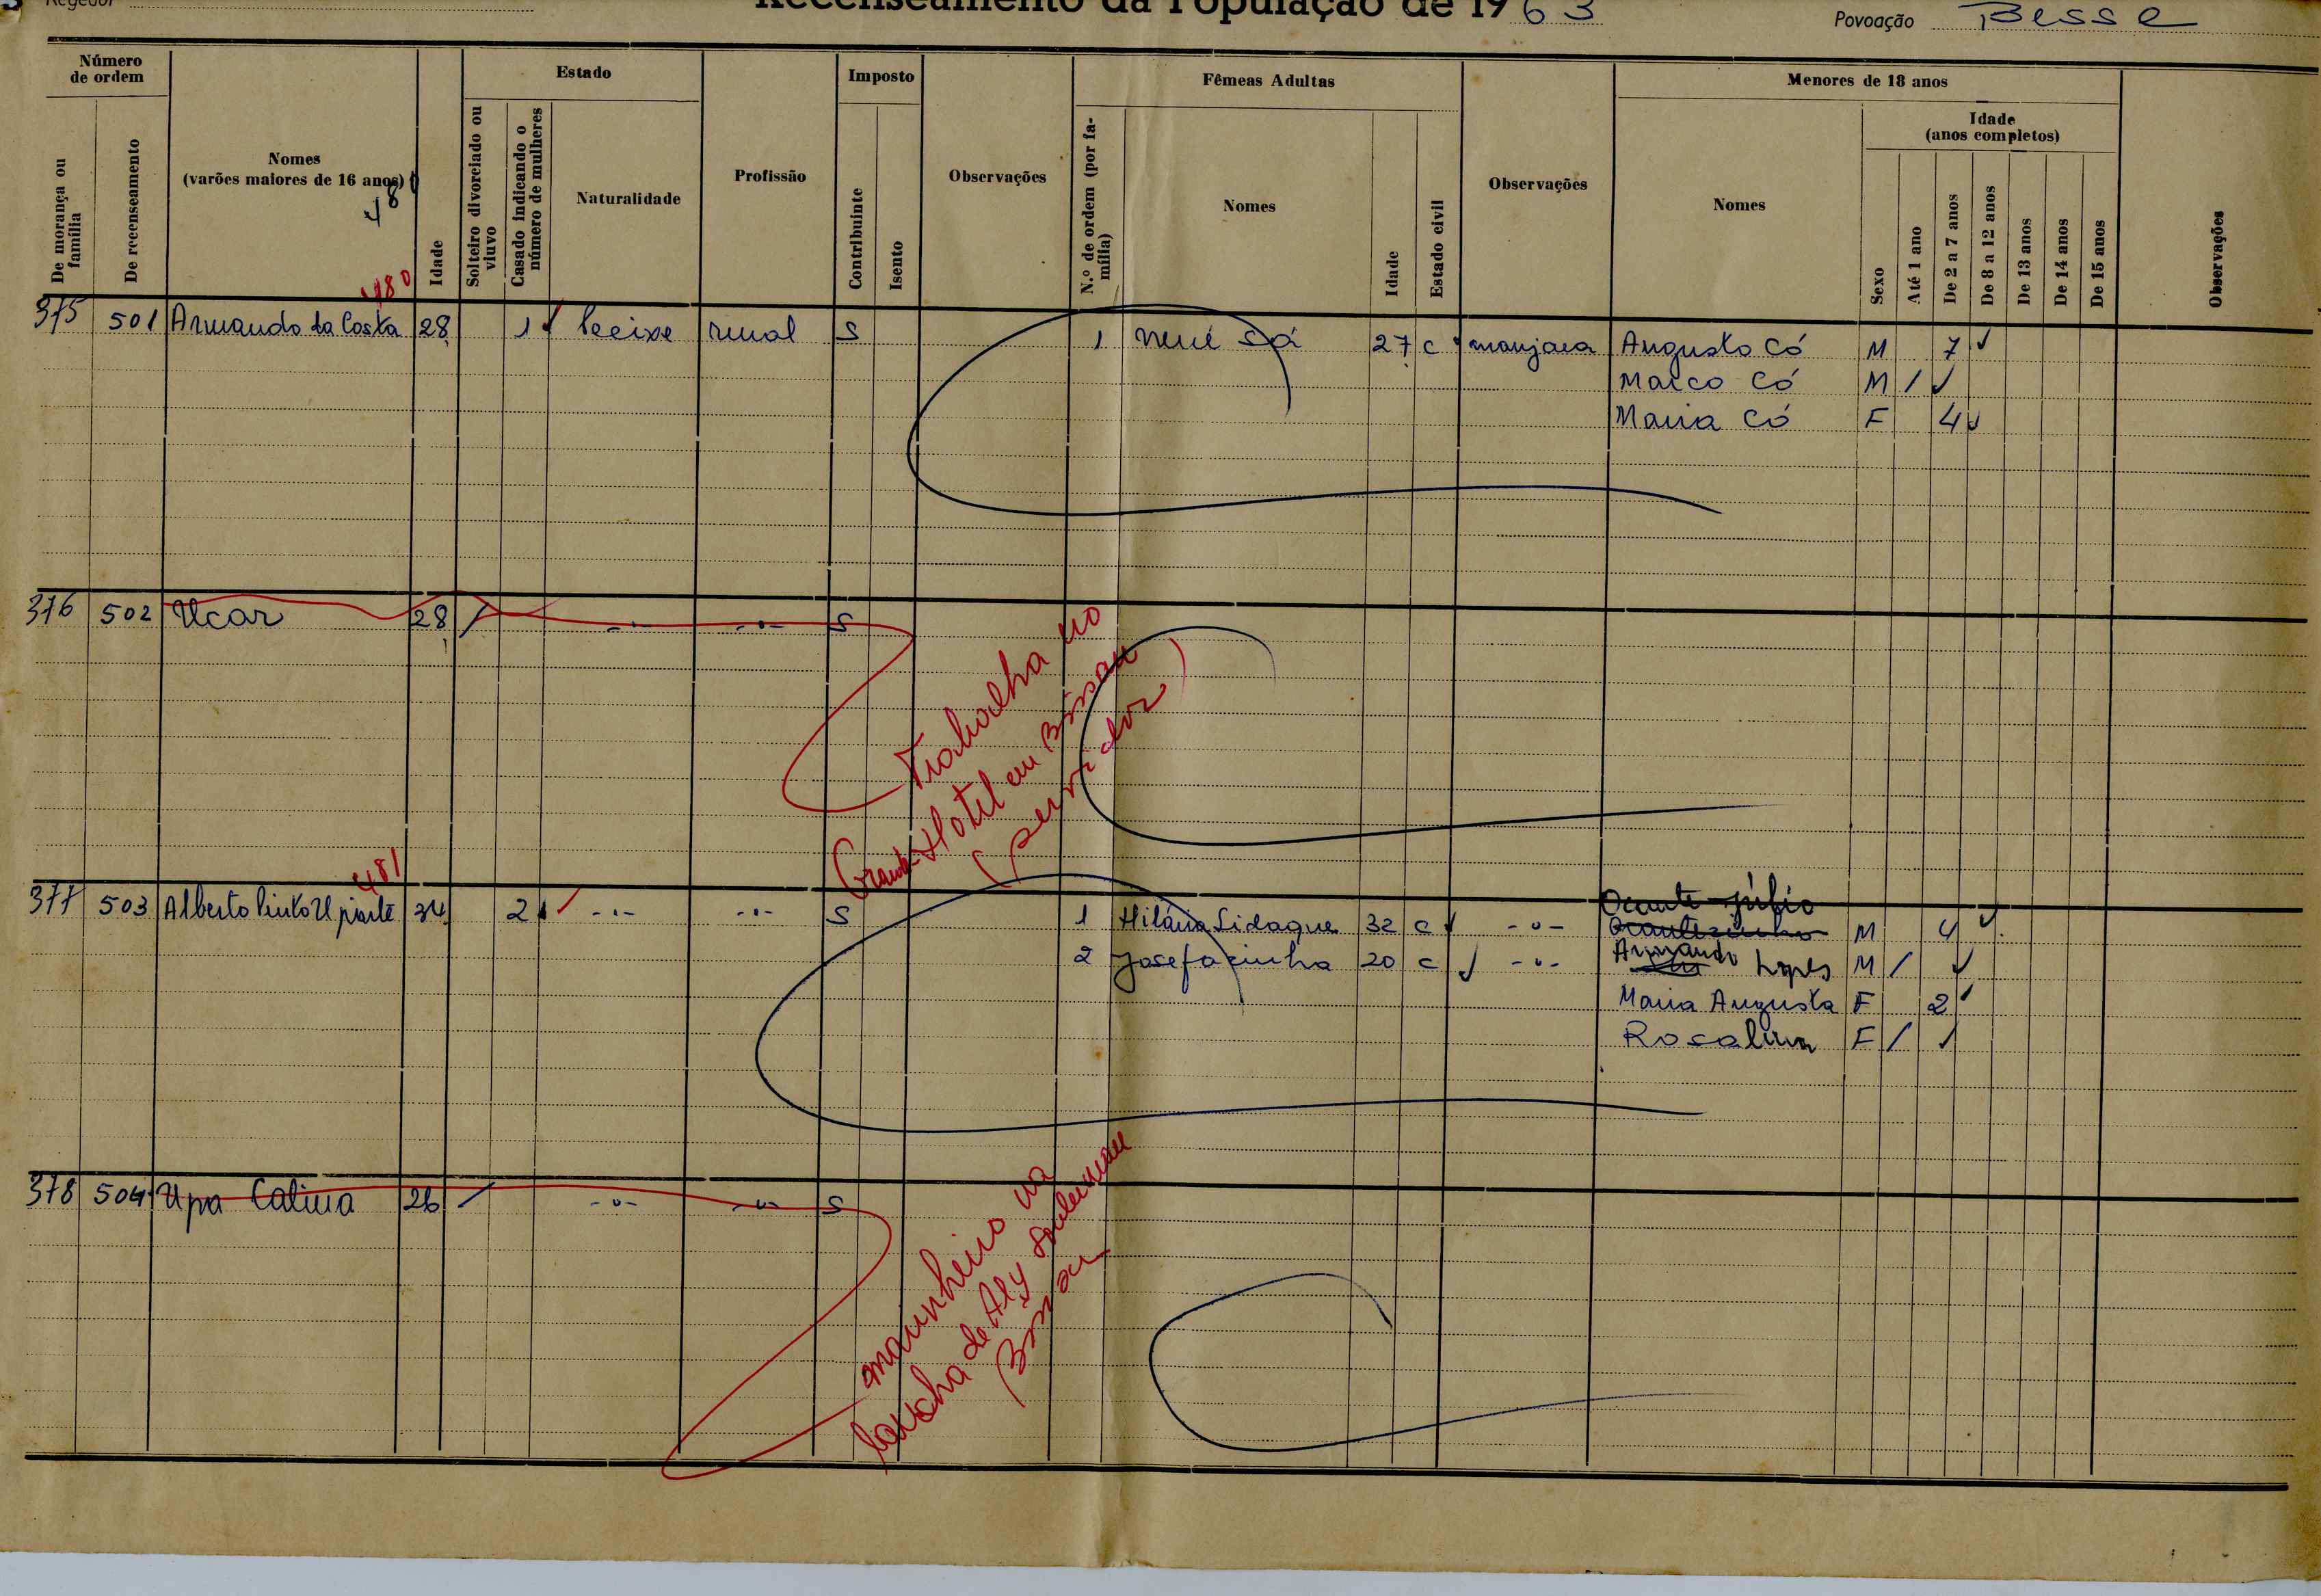 Regedor
Recenseamento da População de 1963
Povoação Besse
Número de ordem
De morança ou família
De recenseamento
Nomes
(varões maiores de 16 anos)
480
Idade
Estado
Solteiro divorciado ou viuvo
Casado indicando o número de mulheres
Naturalidade
Profissão
Imposto
Contribuinte
Isento
Observações
Fêmeas Adultas
N.º de ordem (por família)
Nomes
Idade
Estado civil
Observações
Menores de 18 anos
Nomes
Sexo
Idade
(anos completos)
Até 1 ano
De 2 a 7 anos
De 8 a 12 anos
De 13 anos
De 14 anos
De 15 anos
Observações
480
375 501 Armando da Costa 28 1 rural S 1 Nené Sá 27 c manjaca Augusto Có M 7
Marco Có M /
Maria Có F 4
376 502 Ucar 28 / -"- -"- S
Trabalha no
Grande Hotel em Bissau
(servidor)
481
377 503 Alberto Pinto 34 2 -"- -"- S 1 Hilária Sidaque 32 c -"- Ocante Júlio M 4
2 Josefazinha 20 c -"- Armando Lopes M /
Maria Augusta F 2
Rosalina F /
378 504 Upa Catiua 26 / -"- -"- S
marinheiro na
lancha de Aly Souleiman
Bissau